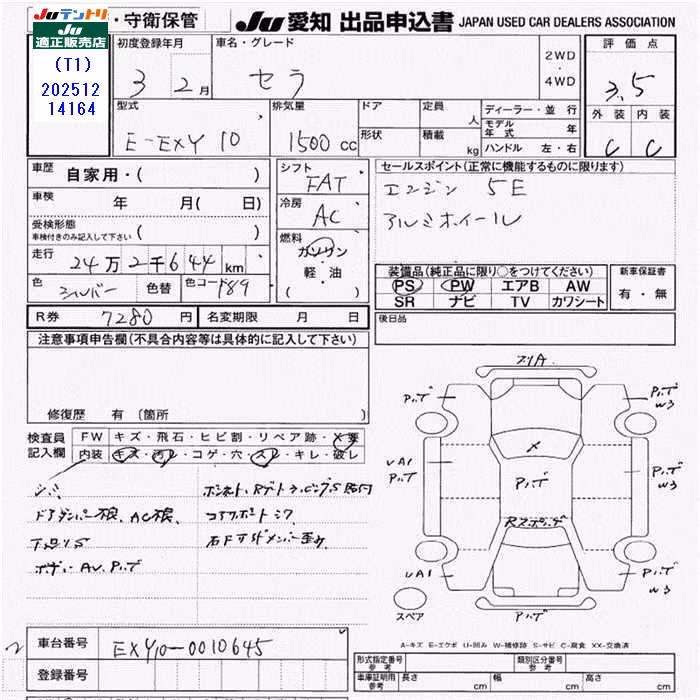 JUテントリ ・守衛保管 JU 愛知 出品申込書 JAPAN USED CAR DEALERS ASSOCIATION
JU 適正販売店
(T1)
202512
14164
初度登録年月 車名・グレード 評価点
3 2月 セラ 2WD・4WD 3.5
型式 排気量 ドア 定員 人 ディーラー・並行 外装 内装
E-EXY10 1500cc 形状 積載 kg モデル年式 年 C C
ハンドル 左・右
車歴 自家用・( )
シフト FAT
セールスポイント(正常に機能するものに限ります)
エンジン 5E
アルミホイール
車検 年 月( 日)
冷房 AC
受検形態 車検付きのみ記入して下さい ( )
燃料 ガソリン・軽・油 ( )
走行 24万2千644km
色 シルバー 色替 色コード 189
装備品(純正品に限り○をつけてください) 新車保証書
PS PW エアB AW 有・無
SR ナビ TV カワシート
R券 7280円 名変期限 月 日
後日品
注意事項申告欄(不具合内容等は具体的に記入して下さい)
修復歴 有 (箇所 )
検査員記入欄 FW キズ・飛石・ヒビ割・リペア跡・X要
内装 キズ・汚レ・コゲ・穴・スレ・キレ・破レ
シミ
ドアダンパー狼、AC狼、
下回りS
ボディAV、
スリA
W3
UA1
X
W3
UA1
W3
スペア
A-キズ E-エクボ U-凹み W-補修跡 S-サビ C-腐食 XX-交換済
車台番号 EXY10-0010645
登録番号
形式指定番号 参考 類別区分番号 参考
車庫証明用 参考 長さ cm 幅 cm 高さ cm